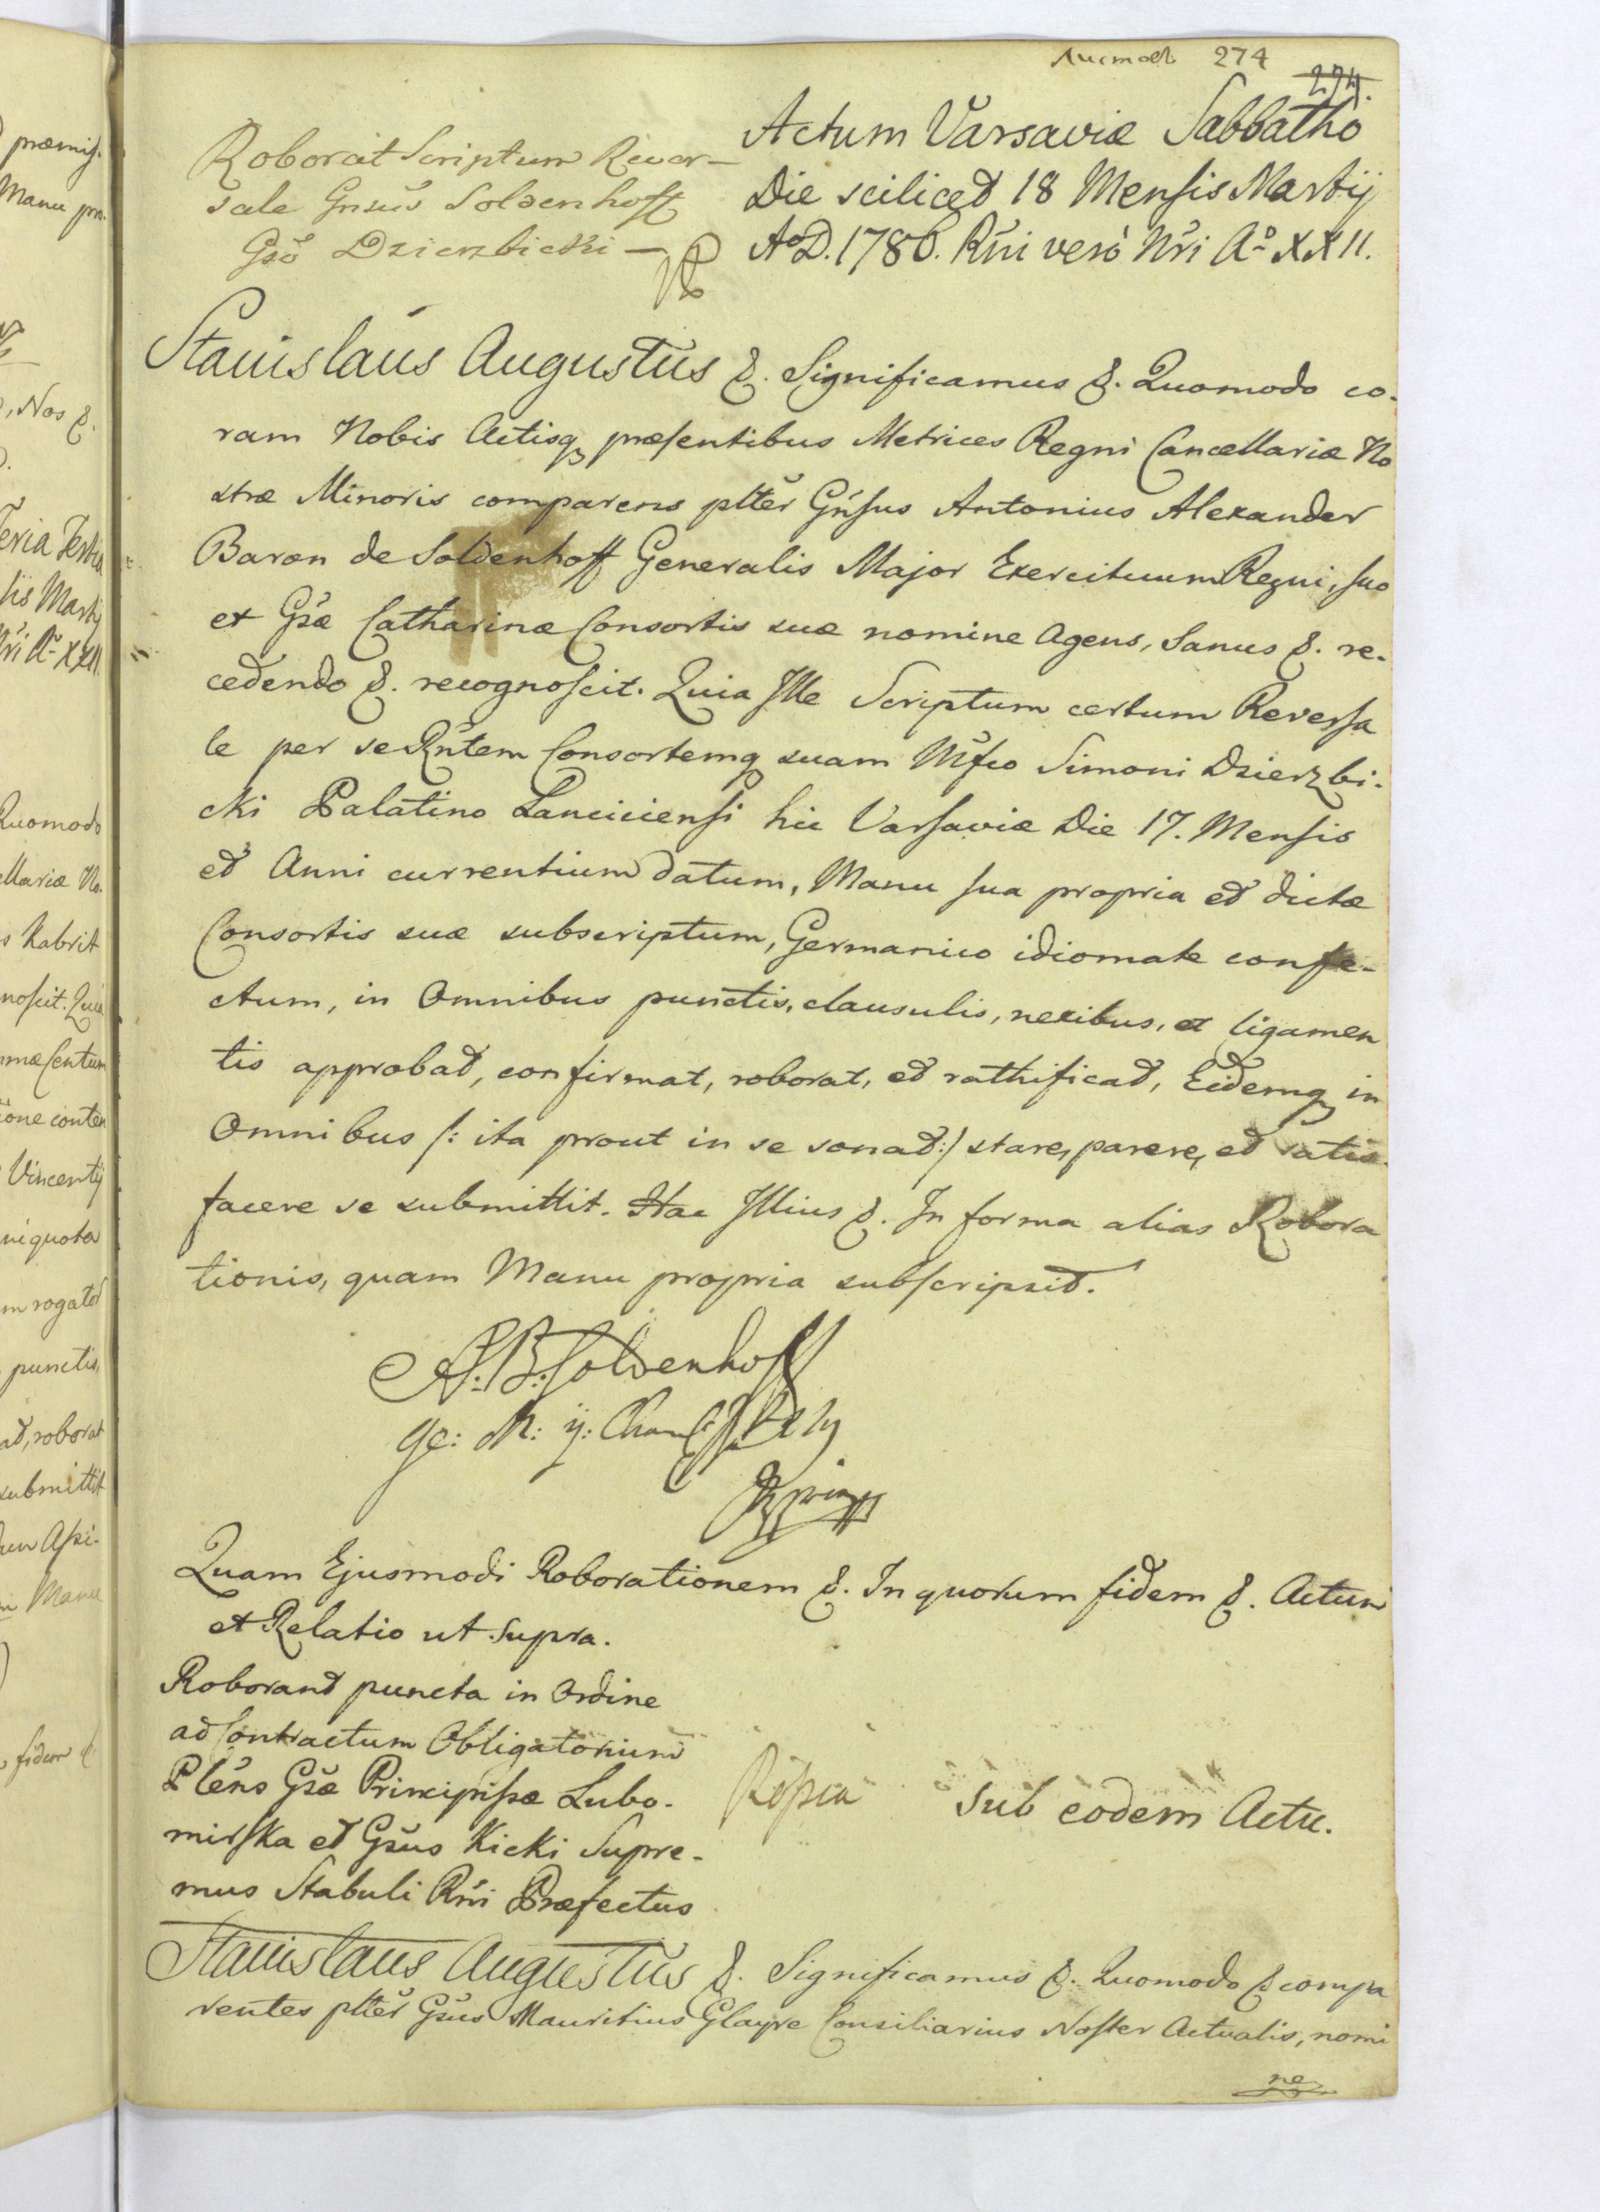 Листов 274
274.
Roborat Scriptum Rever-
sale Gnsus Soldenhoff
Gso Dzierzbicki —
Actum Varsaviæ Sabbatho
Die scilicet 18 Mensis Martij
Aº D. 1786. Rñi verò Nri Aº XXII.
Stanislaus Augustus &. Significamus &. Quomodo co-
ram Nobis Actisq præsentibus Metrices Regni Cancellariæ No
stræ Minoris comparens plter Gnsus Antonius Alexander
Baron de Soldenhoff Generalis Major Exercituum Regni, suo
et Gsæ Catharinæ Consortis suæ nomine Agens, Sanus &. re-
cedendo &. recognoscit. Quia Ille Scriptum certum Reversa
le per se Rntem Consortemq suam Mfco Simoni Dzierzbi-
cki Palatino Lanciciensi hic Varsaviæ Die 17. Mensis
et Anni currentium datum, Manu sua propria et dictæ
Consortis suæ subscriptum, Germanico idiomate confe-
ctum, in Omnibus punctis, clausulis, nexibus, et ligamen
tis approbat, confirmat, roborat, et rathificat, Eidemq in
Omnibus /: ita prout in se sonat :/ stare, parere, et satis-
facere se submittit. Hac Illius &. In forma alias Robora
tionis, quam Manu propria subscripsit.
A: B: Soldenhoff
Ge: M: y:
Quam Ejusmodi Roborationem &. In quorum fidem &. Actum
et Relatio ut supra.
Roborant puncta in Ordine
ad Contractum Obligatorium
Plens Gsæ Principissæ Lubo-
mirska et Gsus Kicki Supre-
mus Stabuli Rñi Præfectus
Sub eodem Actu.
Stanislaus Augustus &. Significamus &. Quomodo &. compa
rentes plter Gsus Mauritius Glayre Consiliarius Noster Actualis, nomi
ne